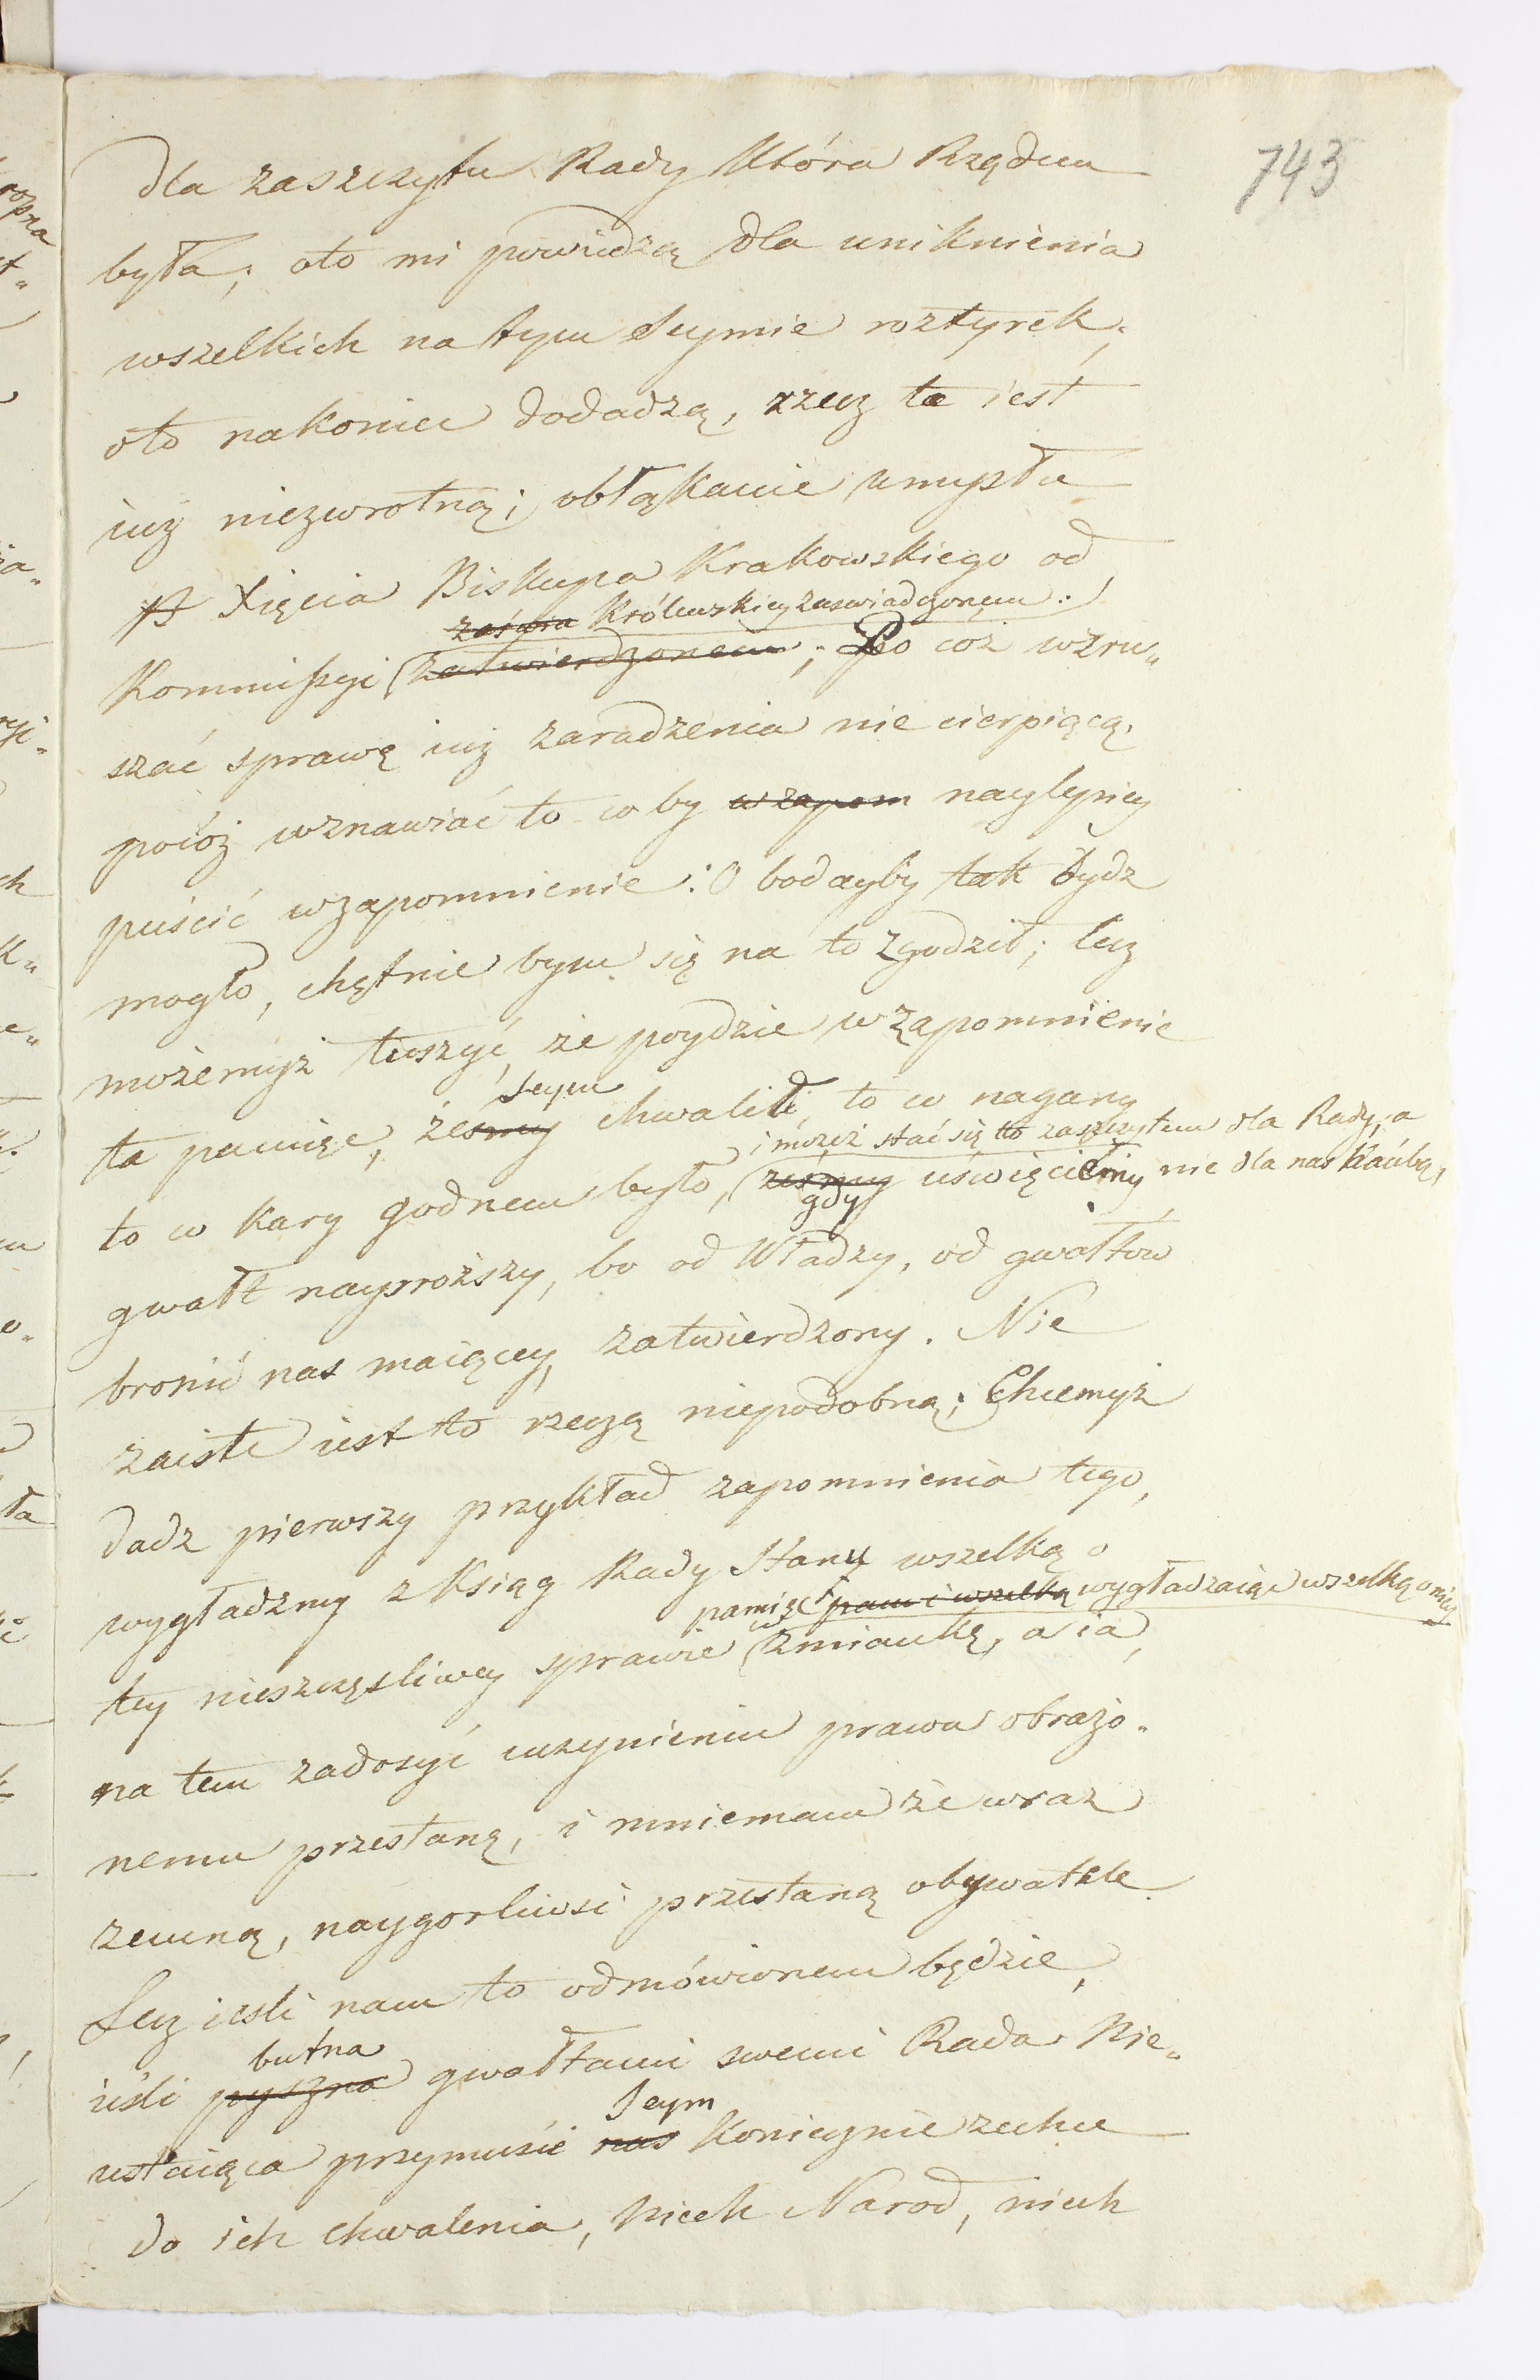 743
dla zaszczytu Rady Która Rządcą
była; oto mi powiedzą dla uniknienia
wszelkich na tym Seymie roztyrek;
oto nakoniec dodadzą, rzecz ta iest
iuż niezwrotną; obłąkanie umysłu
Xięcia Biskupa Krakowskiego od
zaświa Królewskiey zaswiadczonem:
Kommissyi zatwierdzonem; Po coż wzru„
szać sprawę iuż zaradzenia nie cierpiącą,
pocóż wznawiać to co by w zapom naylepiey
puścić w zapomnienie: O bodayby tak bydz
mogło, chętnie bym się na to zgodził; lecz
możemyż tuszyć, że poydzie w zapomnienie
Seym
ta pamięć, żeśmy chwalił, to co nagany
i możeż stać się to zaszczytem dla Rady, a
to co kary godnem było, żeśmy uświęciemy nie dla nas hańbą,
gdy
gwałt naysroższy, bo od Władzy, od gwałtow
bronić nas maiącey, zatwierdzony. Nie
zaiste iest to rzeczą niepodobną; Chcemyż
dadz pierwszy przykład zapomnienia tego,
wygładźmy z Ksiąg Rady Stanu wszelką o
pamięć pam i wszelką wygładzaiąc wszelką o niey
tey nieszczęsliwey sprawie wzmiankę, a ia
na tem zadosyć uczynieniu prawu obrażo„
nemu przestanę, i mniemam że wraz
zemną, naygorliwsi przestaną obywatele
Lecz iesli nam to odmówionem będzie,
butna
iesli pyszna gwałtami swemi Rada Nie„
Seym
ustaiąca przymusić nas koniecznie zechce
do ich chwalenia, niech Narod, niech